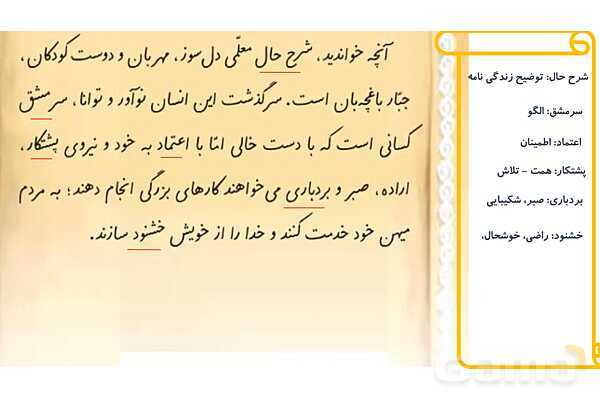 آنچه خواندید، شرح حال معلّمی دل‌سوز، مهربان و دوست کودکان،
جبّار باغچه‌بان است. سرگذشت این انسان نوآور و توانا، سرمشق
کسانی است که با دست خالی امّا با اعتماد به خود و نیروی پشتکار،
اراده، صبر و بردباری می‌خواهند کارهای بزرگی انجام دهند؛ به مردم
میهن خود خدمت کنند و خدا را از خویش خشنود سازند.
شرح حال: توضیح زندگی نامه
سرمشق: الگو
اعتماد: اطمینان
پشتکار: همت - تلاش
بردباری: صبر، شکیبایی
خشنود: راضی، خوشحال،
Gama